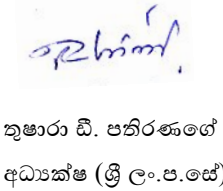 තුෂාරා ඩී. පතිරණගේ
අධ්‍යක්ෂ (ශ්‍රී ලං.ප.සේ)